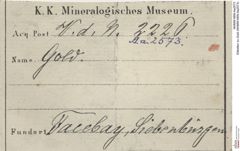 K. K. Mineralogisches Museum.
Acq Post V. d. N. 2226.
Aa 2573.
Name: Gold.
Fundort Facebay, Siebenbürgen